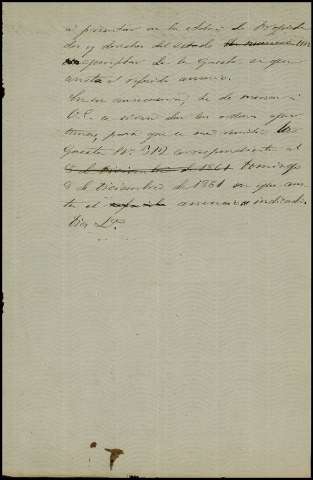 al presentar en la oficina de Propieda
des y derechos del estado el numero
ejemplar de la Gaceta en que
consta el referido anuncio.
En su consecuencia, he de merecer á
V.E. se sirva dar las ordenes opor
tunas, para que se me remita la
Gaceta Nº 342 correspondiente al
8 de Diciembre de 1861 Domingo
8 de Diciembre de 1861 en que cons
ta el referido anuncio indicado.
Dios &ª.